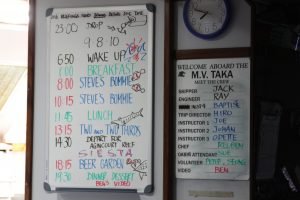 23:00 DROP
9-8-10
6:50 WAKE UP
7:00 BREAKFAST
8:00 STEVE'S BOMMIE
10:15 STEVE'S BOMMIE
11:45 LUNCH
13:15 TWO AND TWO THIRDS
14:30 DEPART FOR AGINCOURT REEF
SIESTA
18:15 BEER GARDEN
19:30 DINNER, DESSERT
BEN'S VIDEO
WELCOME ABOARD THE
M.V. TAKA
MEET THE CREW
SKIPPER JACK
ENGINEER RAY
BAPTISTE
TRIP DIRECTOR HIRO
INSTRUCTOR 1 JOE
INSTRUCTOR 2 JOHAN
INSTRUCTOR 3 ODETTE
CHEF
STEVE
VOLUNTEER PETER
VIDEO BEN